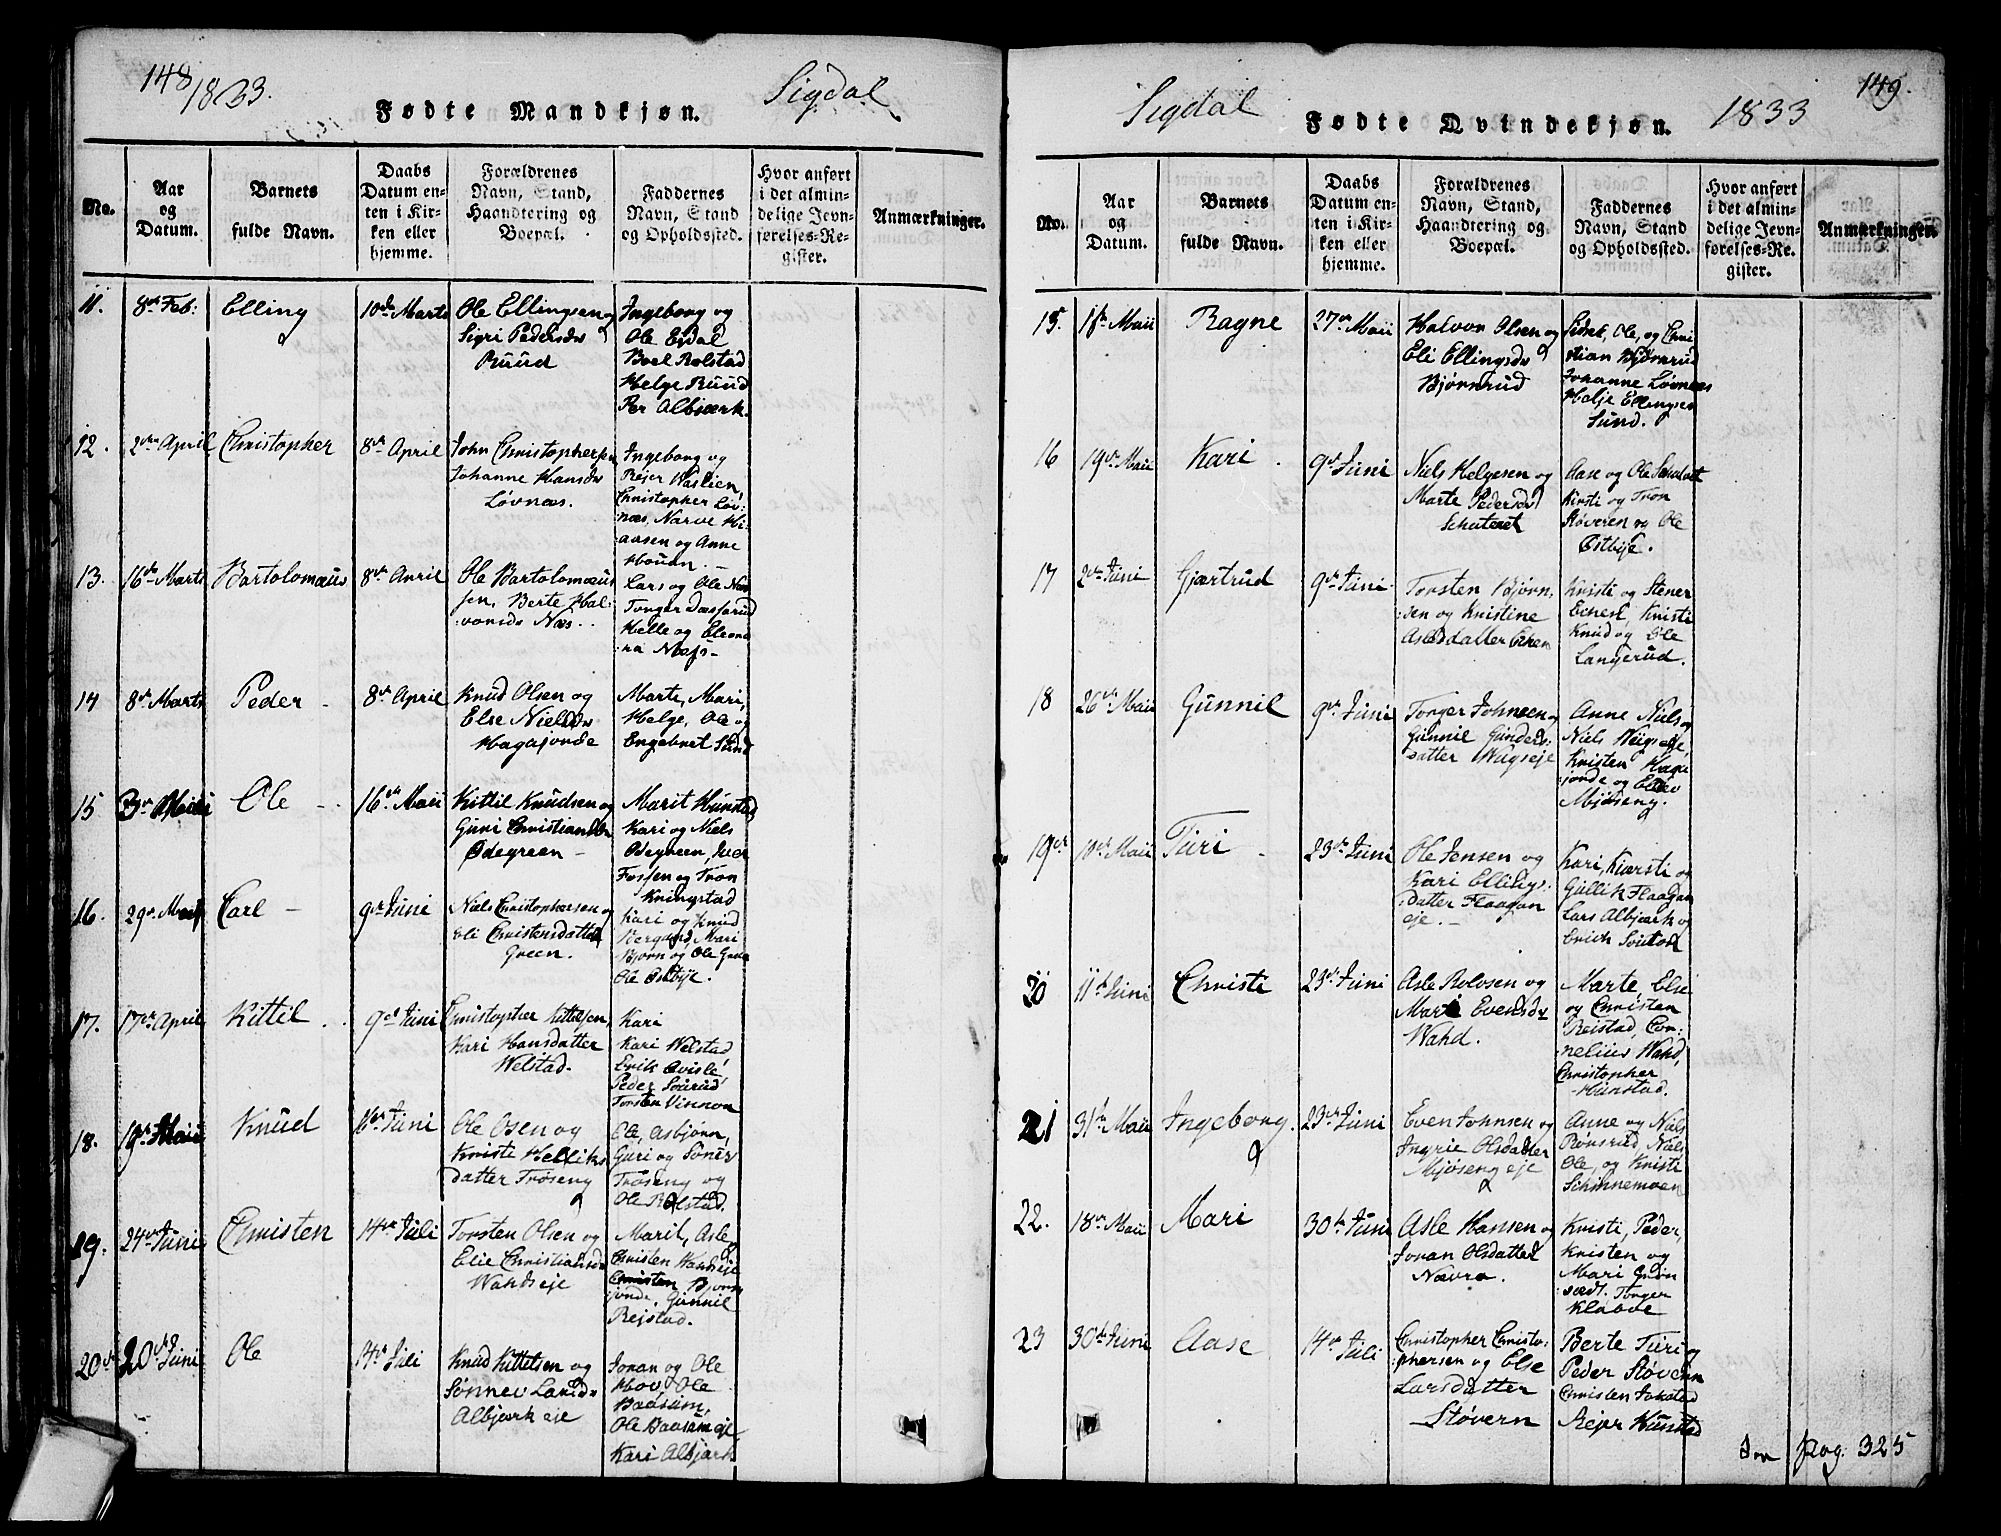 148/1833.
Fødte Mandkjøn.
Sigdal
No.
Aar og Datum.
Barnets fulde Navn.
Daabs Datum enten i Kirken eller hjemme.
Forældrenes Navn, Stand, Haandtering og Boepæl.
Faddernes Navn, Stand og Opholdssted.
Hvor anført i det almindelige Jevnførelses-Register.
Anmærkninger.
11. 8de Feb: Elling 10de Marts
Ole Ellingsen og
Sigri Pedersdr
Ruud
Ingeborg og
Ole Esdal
Boel Rolstad
Helge Ruud
Per Albjærk.
12. 2den April Christopher 8de April
John Christophersen
Johanne Hansdr
Løvnæs.
Ingeborg og
Rejer Waslien,
Christopher Løv:
næs, Narve Hi-
aasen og Anne
Houan.
13. 16de Marts Bartolomæus 8de April
Ole Bartolomæus
sen, Berte Hal-
vorsdr Næs.
Lars og Ole Næs
Torger
Helle og Eleono
ra Næss
14 8de Marts Peder 8de April
Knud Olsen og
Else Nielsdr
Hagajorde
Marte, Mari,
Helge, Ole og
Engebret Sund
15 Maii Ole 16de Maii
Kittil Knudsen og
Guri Christiansdr
Ødegreen
Marit Hunstad
Kari og Niels
Ødegreen, Iver
Fossen og Tron
Kringstad
16. 29de Carl 9de Juni
Niels Christophersen og
Eli Christensdatter
Green.
Kari og Knud
Bergand, Mari
Bjørn og Ole Green
Ole Østbye.
17. 17de April Kittil 9de Juni
Christopher Kittelsen,
Kari Hansdatter
Welstad.
Kari
Kari Welstad
Erik Qvisle
Peder Sourud
Torsten Vinnon
18. 19de Maii Knud 16de Juni
Ole Osen og
Kristi Helliks
datter Trøseng
Ole, Asbjørn,
Guri og Søner
Trøseng og
Ole Rolstad.
19. 24de Juni Christen 14de Juli
Torsten Olsen og
Elie Christiansdr
Wahdseje
Marit, Asle
Christen Wahdseje
Christen Bjørn
jorde, Gunnil
Rejstad.
20de 20de Juni Ole 14de Juli
Knud Kittelsen og
Sønnev Larsdr
Albjærk eje
Joran og Ole
Hov, Ole
Baasum,
Ole Baasum eje
Kari Albjærk
149.
Sigdal
Fødte Qvindekjøn.
1833
No.
Aar og Datum.
Barnets fulde Navn.
Daabs Datum enten i Kirken eller hjemme.
Forældrenes Navn, Stand, Haandtering og Boepæl.
Faddernes Navn, Stand og Opholdssted.
Hvor anført i det almindelige Jevnførelses-Register.
Anmærkninger.
15. Maii Ragne 27de Maii
Halvor Olsen og
Eli Ellingsdr
Bjørnrud
Sidsel, Ole, og Chri
stian Bjørnrud
Johanne Løvnæs
Helje Ellingsen
Sund.
16 19de Maii Kari 9de Juni
Niels Helgesen og
Marte Pedersdr
Schuteret
Aase og Ole
Kirsti og Tron
Støveren og Ole
Østbye.
17 2den Juni Gjærtrud 9de Juni
Torsten Bjørn
sen og Kristine
Aslesdatter Ecken
Kristi og Stener
Echest, Kristi
Knud og Ole
Langerud.
18 26de Maii Gunnil 9de Juni
Torger Johnsen og
Gunnil Gunders
datter Wugseje
Anne Niels og
Niels Wugseje,
Kristen Haga
jorde og Ellev
Mjøseng.
19de Maii Turi 23de Juni
Ole Jensen og
Kari Ellings
datter Flaagan
eje.
Kari, Kjærsti og
Gullik Flaagan
Lars Albjærk og
Erich
20 11te Juni Christi 23de Juni
Asle Rolvsen og
Mari Evensdr
Wahd.
Marte, Else
og Christen
Reistad, Cor:
nelius Wahd,
Christopher
Hunstad.
21 31te Maii Ingeborg. 23de Juni
Even Johnsen og
Ingrie Olsdatter
Mjøseng eje
Anne og Niels
Rønsrud, Niels
Ole, og Kristi
Schinnemoen
22. 18de Maii Mari 30te Juni
Asle Hansen og
Joran Olsdatter
Nævra.
Kristi, Peder,
Kristen og
Mari Grøn
sædt. Torger
Klaboe
23 30te Juni Aase 14de Juli
Christopher Christo:
phersen og Else
Larsdatter
Støvern
Berte Turi og
Peder Støvern
Christen Jokstad
Rejer Hunstad
pag. 325